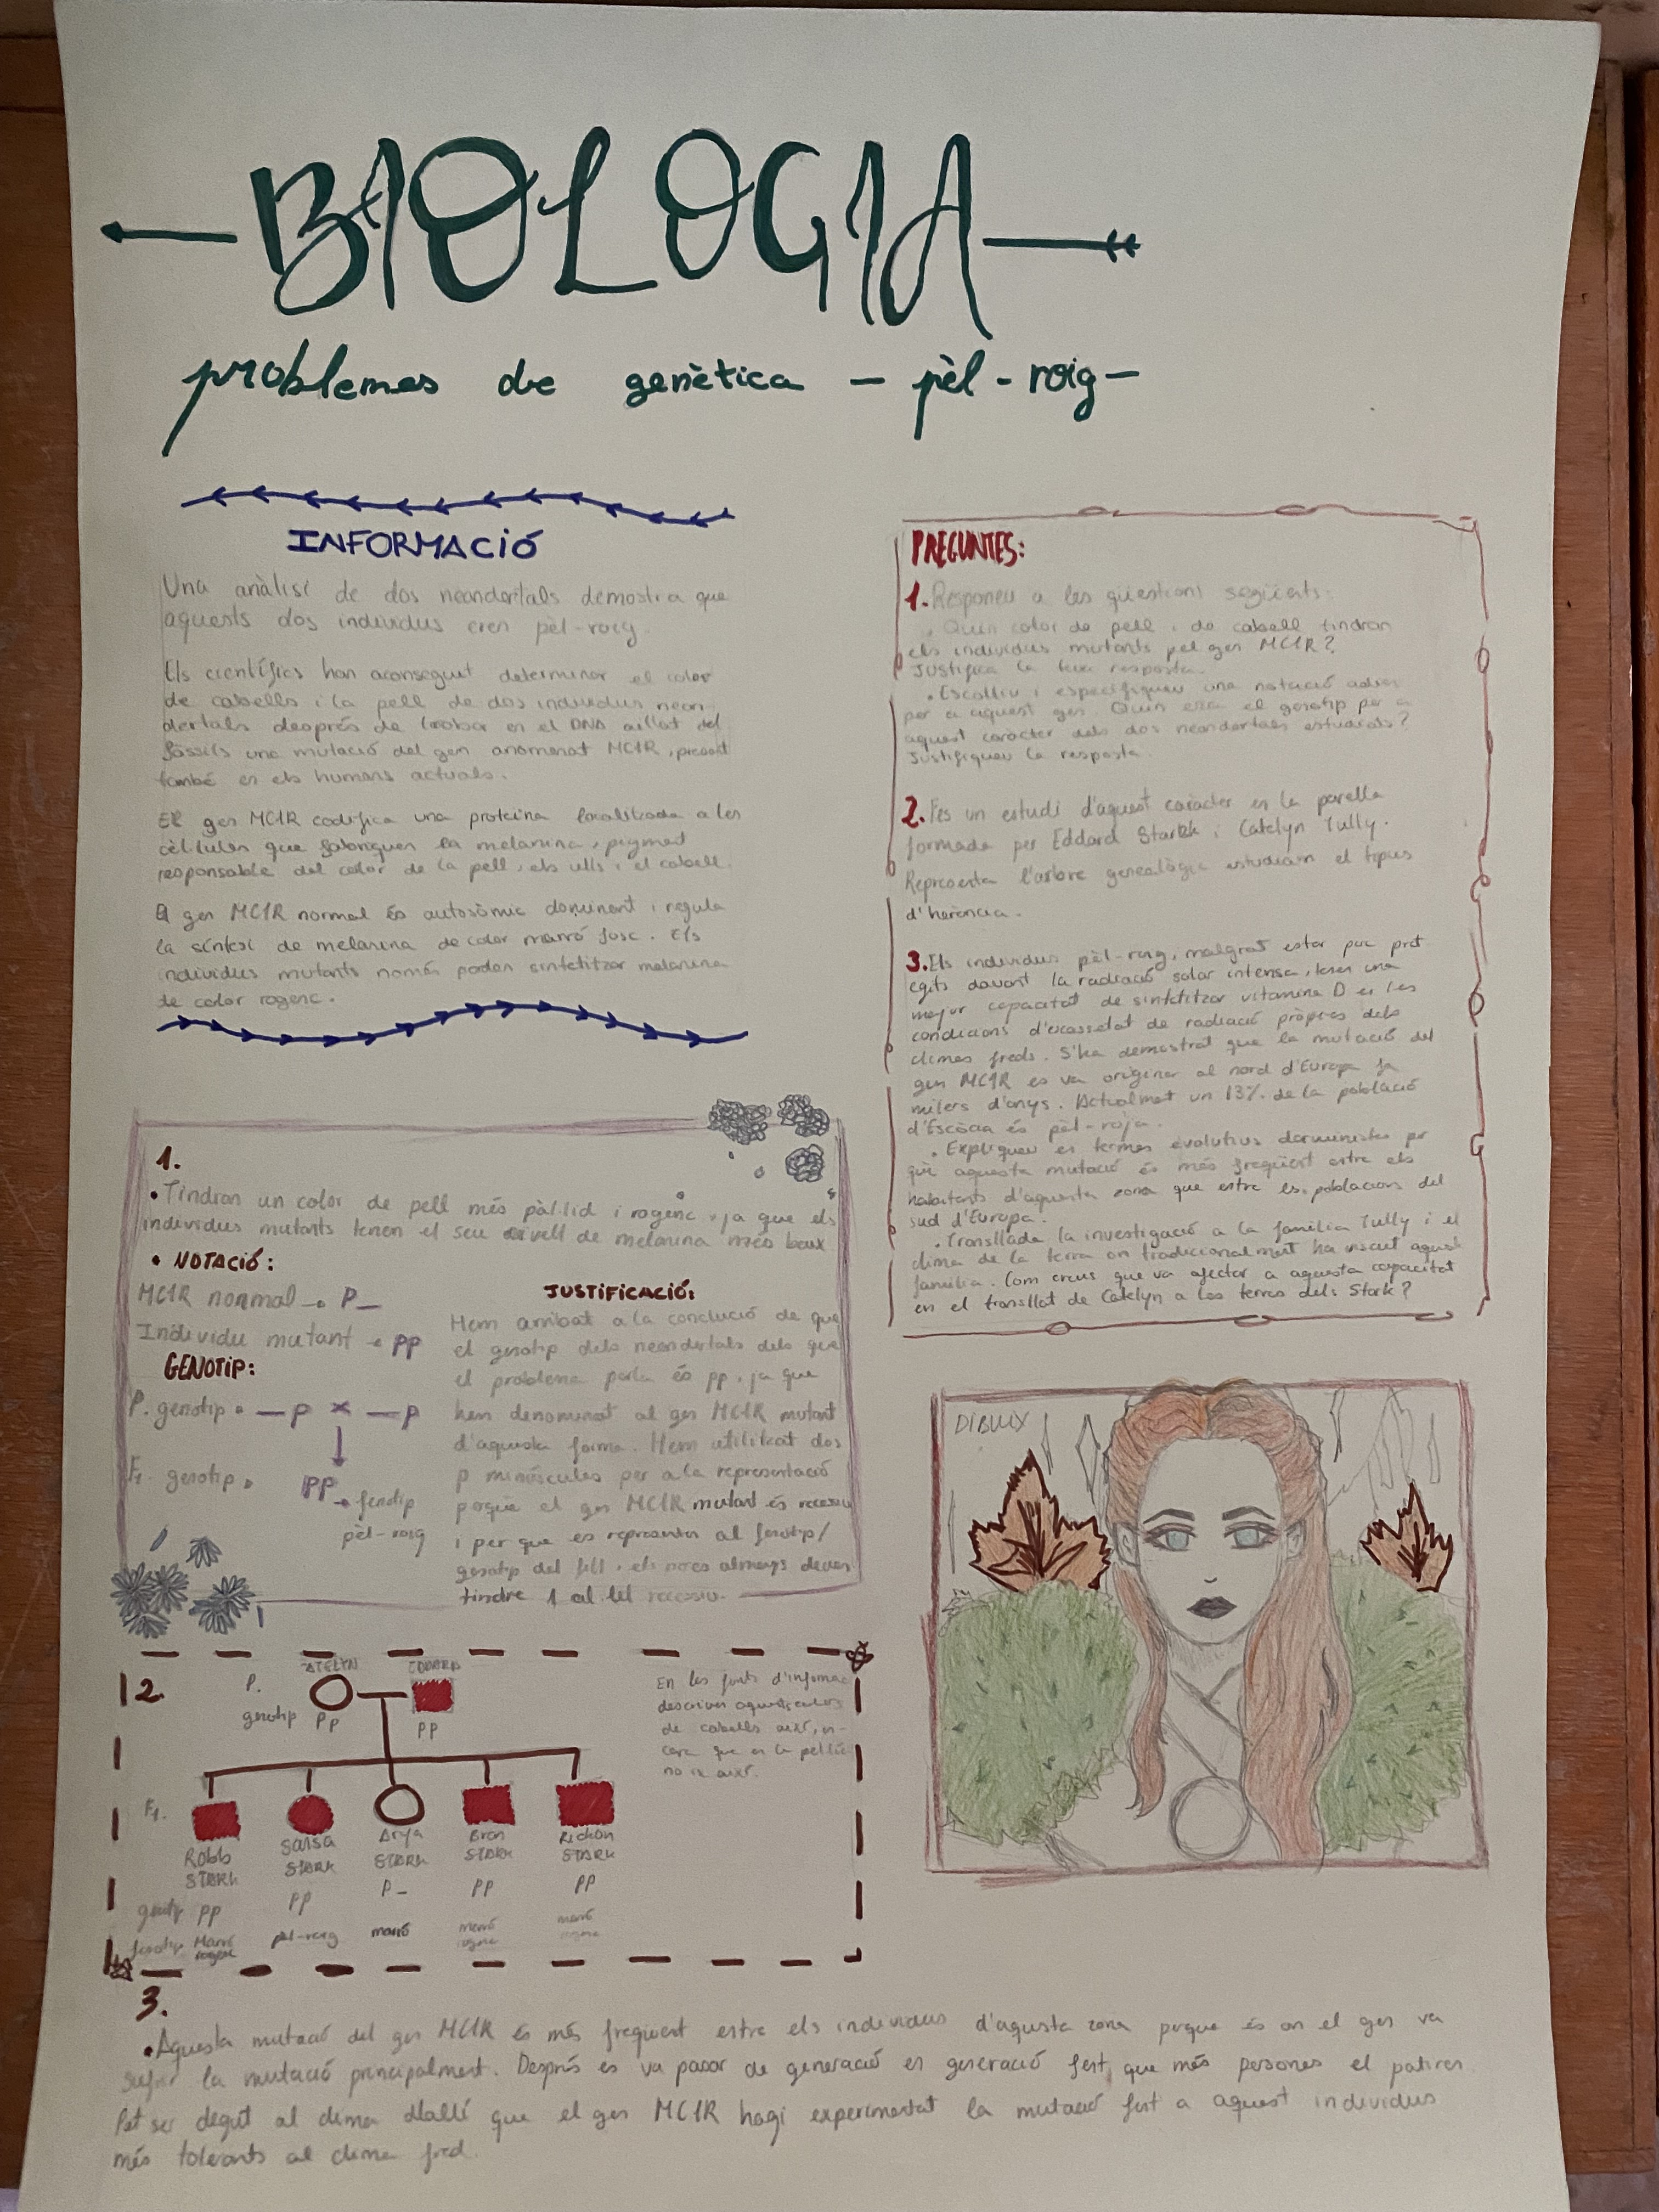 BIOLOGIA
problemes de genètica - pèl-roig-
INFORMACIÓ
Una anàlisi de dos neandertals demostra que
aquests dos individus eren pèl-roig.
Els científics han aconseguit determinar el color
de cabells i la pell de dos individus nean-
dertals després de trobar en el DNA aïllat del
fòssils una mutació del gen anomenat MC1R, present
també en els humans actuals.
El gen MC1R codifica una proteïna localitzada a les
cèl·lules que fabriquen la melanina, pigment
responsable del color de la pell, els ulls i el cabell.
El gen MC1R normal és autosòmic dominant i regula
la síntesi de melanina de color marró fosc. Els
individus mutants només poden sintetitzar melanina
de color rogenc.
PREGUNTES:
1. Responeu a les qüestions següents:
. Quin color de pell i de cabell tindran
els individus mutants pel gen MC1R?
Justifica la teua resposta.
. Escolliu i especifiqueu una notació
per a aquest gen. Quin era el genotip per a
aquest caràcter dels dos neandertals estudiats?
Justifiqueu la resposta.
2. Fes un estudi d'aquest caràcter en la parella
formada per Eddard Stark i Catelyn Tully.
Representa l'arbre genealògic estudiant el tipus
d'herència.
3. Els individus pèl-roig, malgrat estar poc prot
egits davant la radiació solar intensa, tenen una
major capacitat de sintetitzar vitamina D en les
condicions d'escassetat de radiació pròpies dels
climes freds. S'ha demostrat que la mutació del
gen MC1R es va originar al nord d'Europa fa
milers d'anys. Actualment un 13% de la població
d'Escòcia és pèl-roja.
. Expliqueu en termes evolutius darwinistes per
què aquesta mutació és més freqüent entre els
habitants d'aquesta zona que entre les poblacions del
sud d'Europa.
. Transllada la investigació a la família Tully i el
clima de la terra on tradicionalment ha viscut aquesta
família. Com creus que va afectar a aquesta capacitat
en el transllat de Catelyn a les terres dels Stark?
1.
• Tindran un color de pell més pàl·lid i rogenc, ja que els
individus mutants tenen el seu nivell de melanina més baix
• NOTACIÓ:
MC1R normal → P_
Individu mutant → pp
GENOTIP:
P. genotip → _p x _p
F1. genotip → pp → fenotip
pèl-roig
JUSTIFICACIÓ:
Hem arribat a la conclució de que
el genotip dels neandertals dels que
el problema parla és pp, ja que
hem denominat al gen MC1R mutant
d'aquesta forma. Hem utilitzat dos
p minúscules per a la representació
perquè el gen MC1R mutant és recessiu
i per que es representen al fenotip/
genotip del fill, els pares almenys deuen
tindre 1 al·lel recessiu.
2.
P. CATELYN EDDARD
genotip Pp pp
F1.
Robb Sansa Arya Bran Rickon
STARK STARK STARK STARK STARK
genotip pp pp P_ pp pp
fenotip Marró rogenc pèl-roig marró marró rogenc marró rogenc
En les fonts d'informació
descriven aquests colors
de cabells així, en-
cara que en la pel·lic
no és així.
DIBUIX
3.
• Aquesta mutació del gen MC1R és més freqüent entre els individus d'aquesta zona perque és on el gen va
sufrir la mutació principalment. Després es va pasar de generació en generació fent que més persones el patiren.
Pot ser degut al clima d'allí que el gen MC1R hagi experimentat la mutació fent a aquest individus
més tolerants al clima fred.